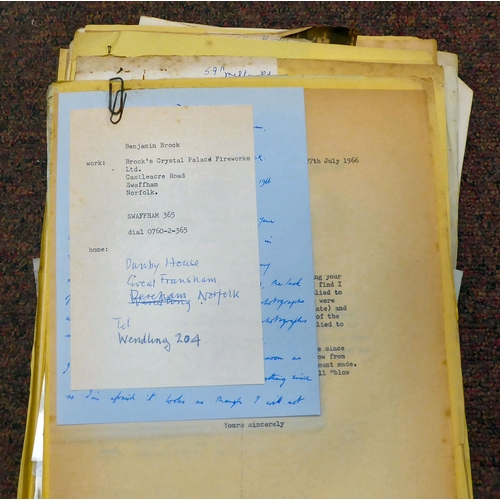 59A
Benjamin Brock
work: Brock's Crystal Palace Fireworks
Ltd.
Castleacre Road
Swaffham
Norfolk.
SWAFFHAM 365
dial 0760-2-365
home:
Danby House
Great Fransham
Dereham Norfolk
Wendling
Tel
Wendling 204
7th July 1966
in
the lack
photographs
photographs
soon as
since
I'm afraid it looks as though I will not
ng your
find I
lied to
were
ate) and
of the
lied to
e since
ow from
ent made.
ll "blow
Yours sincerely